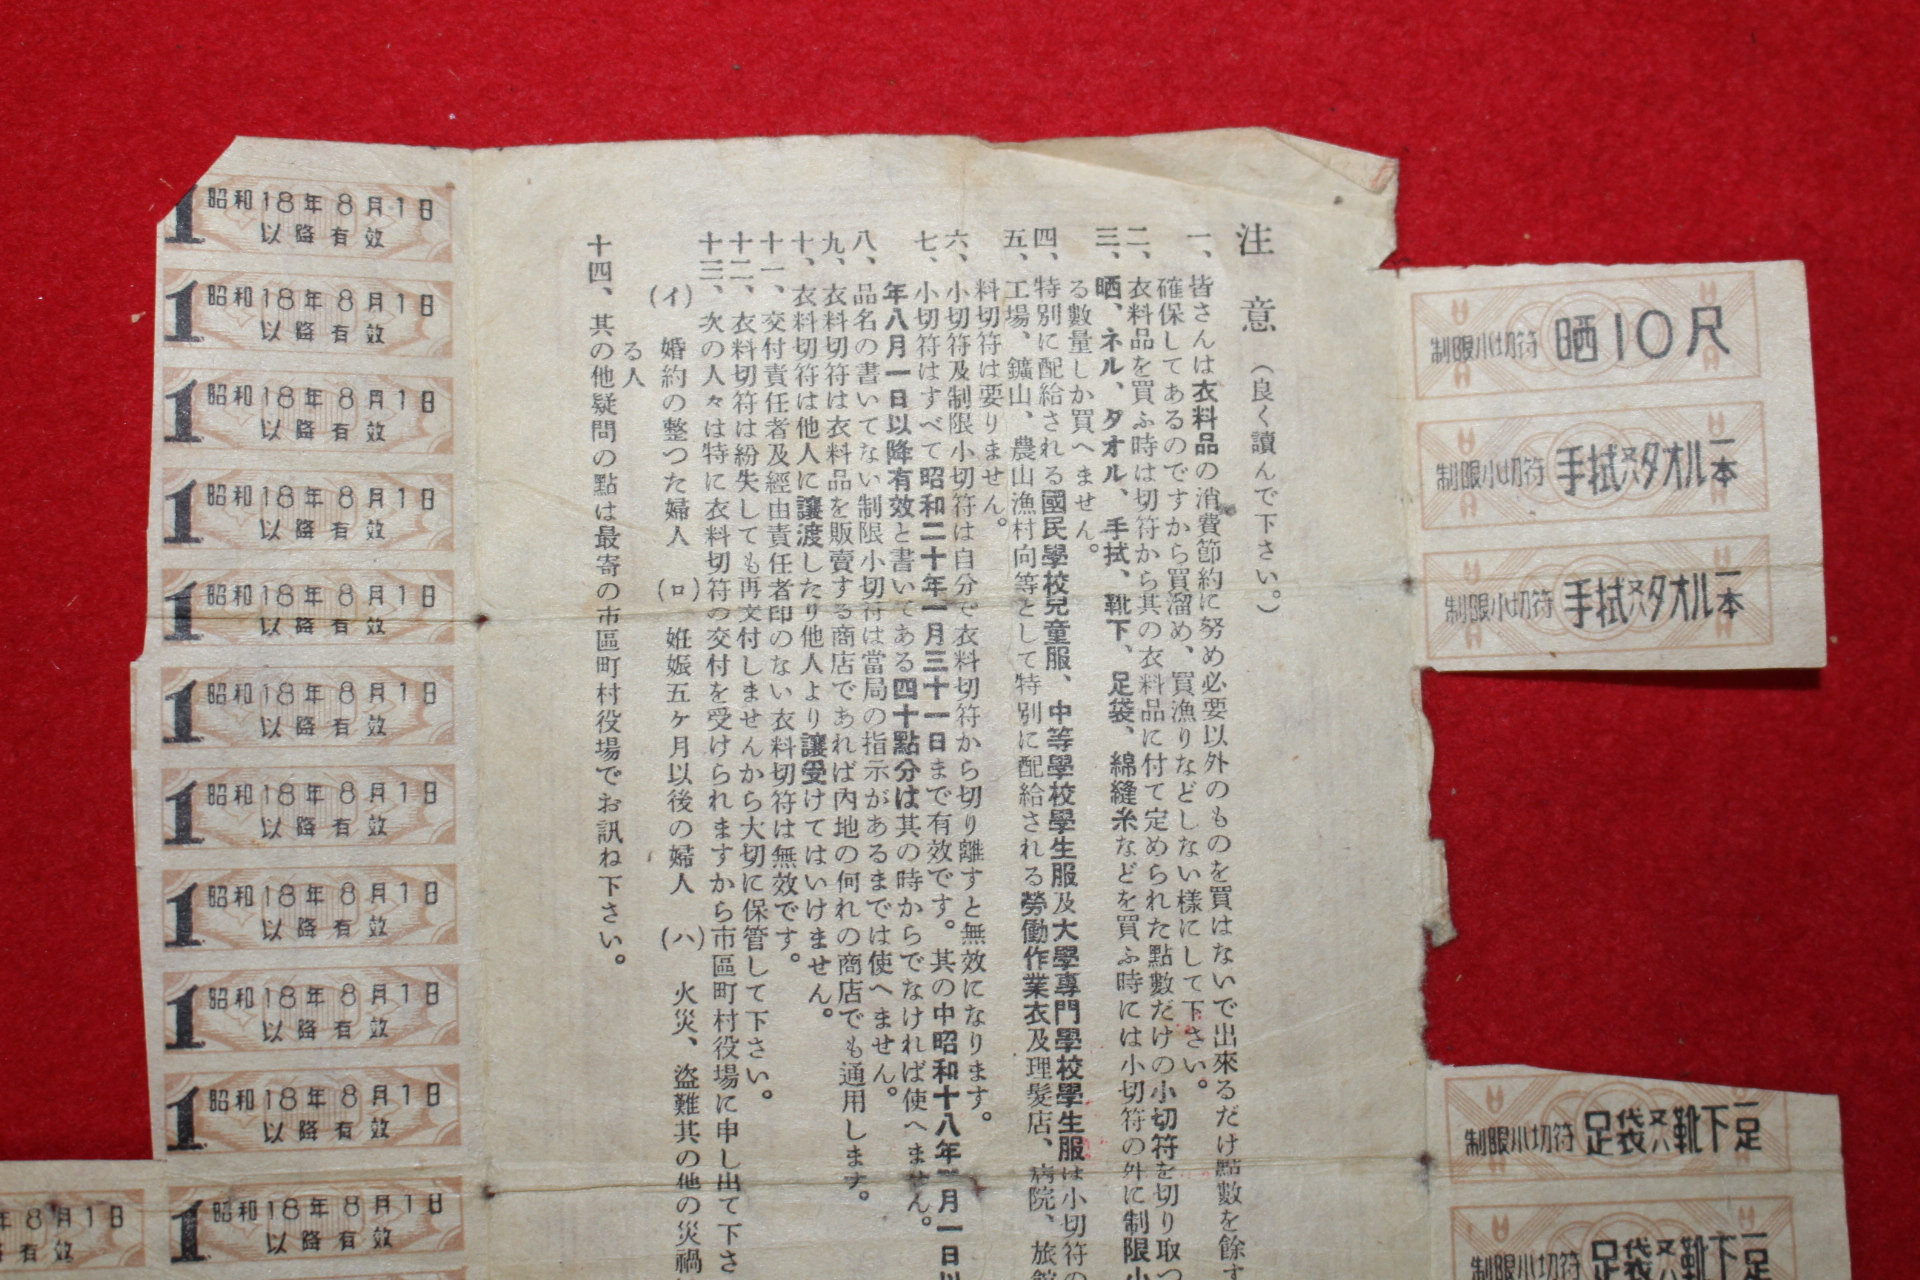 制限小切符 晒10尺
制限小切符 手拭又ハタオル一本
制限小切符 手拭又ハタオル一本
制限小切符 足袋又ハ靴下一足
制限小切符 足袋又ハ靴下一足
注意（良く讀んで下さい。）
一、皆さんは衣料品の消費節約に努め必要以外のものを買はないで出來るだけ點數を餘す
確保してあるのですから買溜め、買漁りなどしない樣にして下さい。
二、衣料品を買ふ時は切符から其の衣料品に付て定められた點數だけの小切符を切り取つ
三、晒、ネル、タオル、手拭、靴下、足袋、綿縫糸などを買ふ時には小切符の外に制限小
る數量しか買へません。
四、特別に配給される國民學校兒童服、中等學校學生服及大學專門學校學生服は小切符の
五、工場、鑛山、農山漁村向等として特別に配給される勞働作業衣及理髮店、病院、旅館
料切符は要りません。
六、小切符及制限小切符は自分で衣料切符から切り離すと無效になります。
七、小切符はすべて昭和二十年一月三十一日まで有效です。其の中昭和十八年月一日以
年八月一日以降有效と書いてある四十點分は其の時からでなければ使へません。
八、品名の書いてない制限小切符は當局の指示があるまでは使へません。
九、衣料切符は衣料品を販賣する商店であれば內地の何れの商店でも通用します。
十、衣料切符は他人に讓渡したり他人より讓受けてはいけません。
十一、交付責任者及經由責任者印のない衣料切符は無效です。
十二、衣料切符は紛失しても再交付しませんから大切に保管して下さい。
十三、次の人々は特に衣料切符の交付を受けられますから市區町村役場に申し出て下さ
(イ) 婚約の整つた婦人 (ロ) 姙娠五ヶ月以後の婦人 (ハ) 火災、盜難其の他の災禍
る人
十四、其の他疑問の點は最寄の市區町村役場でお訊ね下さい。
1 昭和18年8月1日
以降有效
1 昭和18年8月1日
以降有效
1 昭和18年8月1日
以降有效
1 昭和18年8月1日
以降有效
1 昭和18年8月1日
以降有效
1 昭和18年8月1日
以降有效
1 昭和18年8月1日
以降有效
1 昭和18年8月1日
以降有效
1 昭和18年8月1日
以降有效
1 昭和18年8月1日
以降有效
1 昭和18年8月1日
以降有效
年8月1日
有效